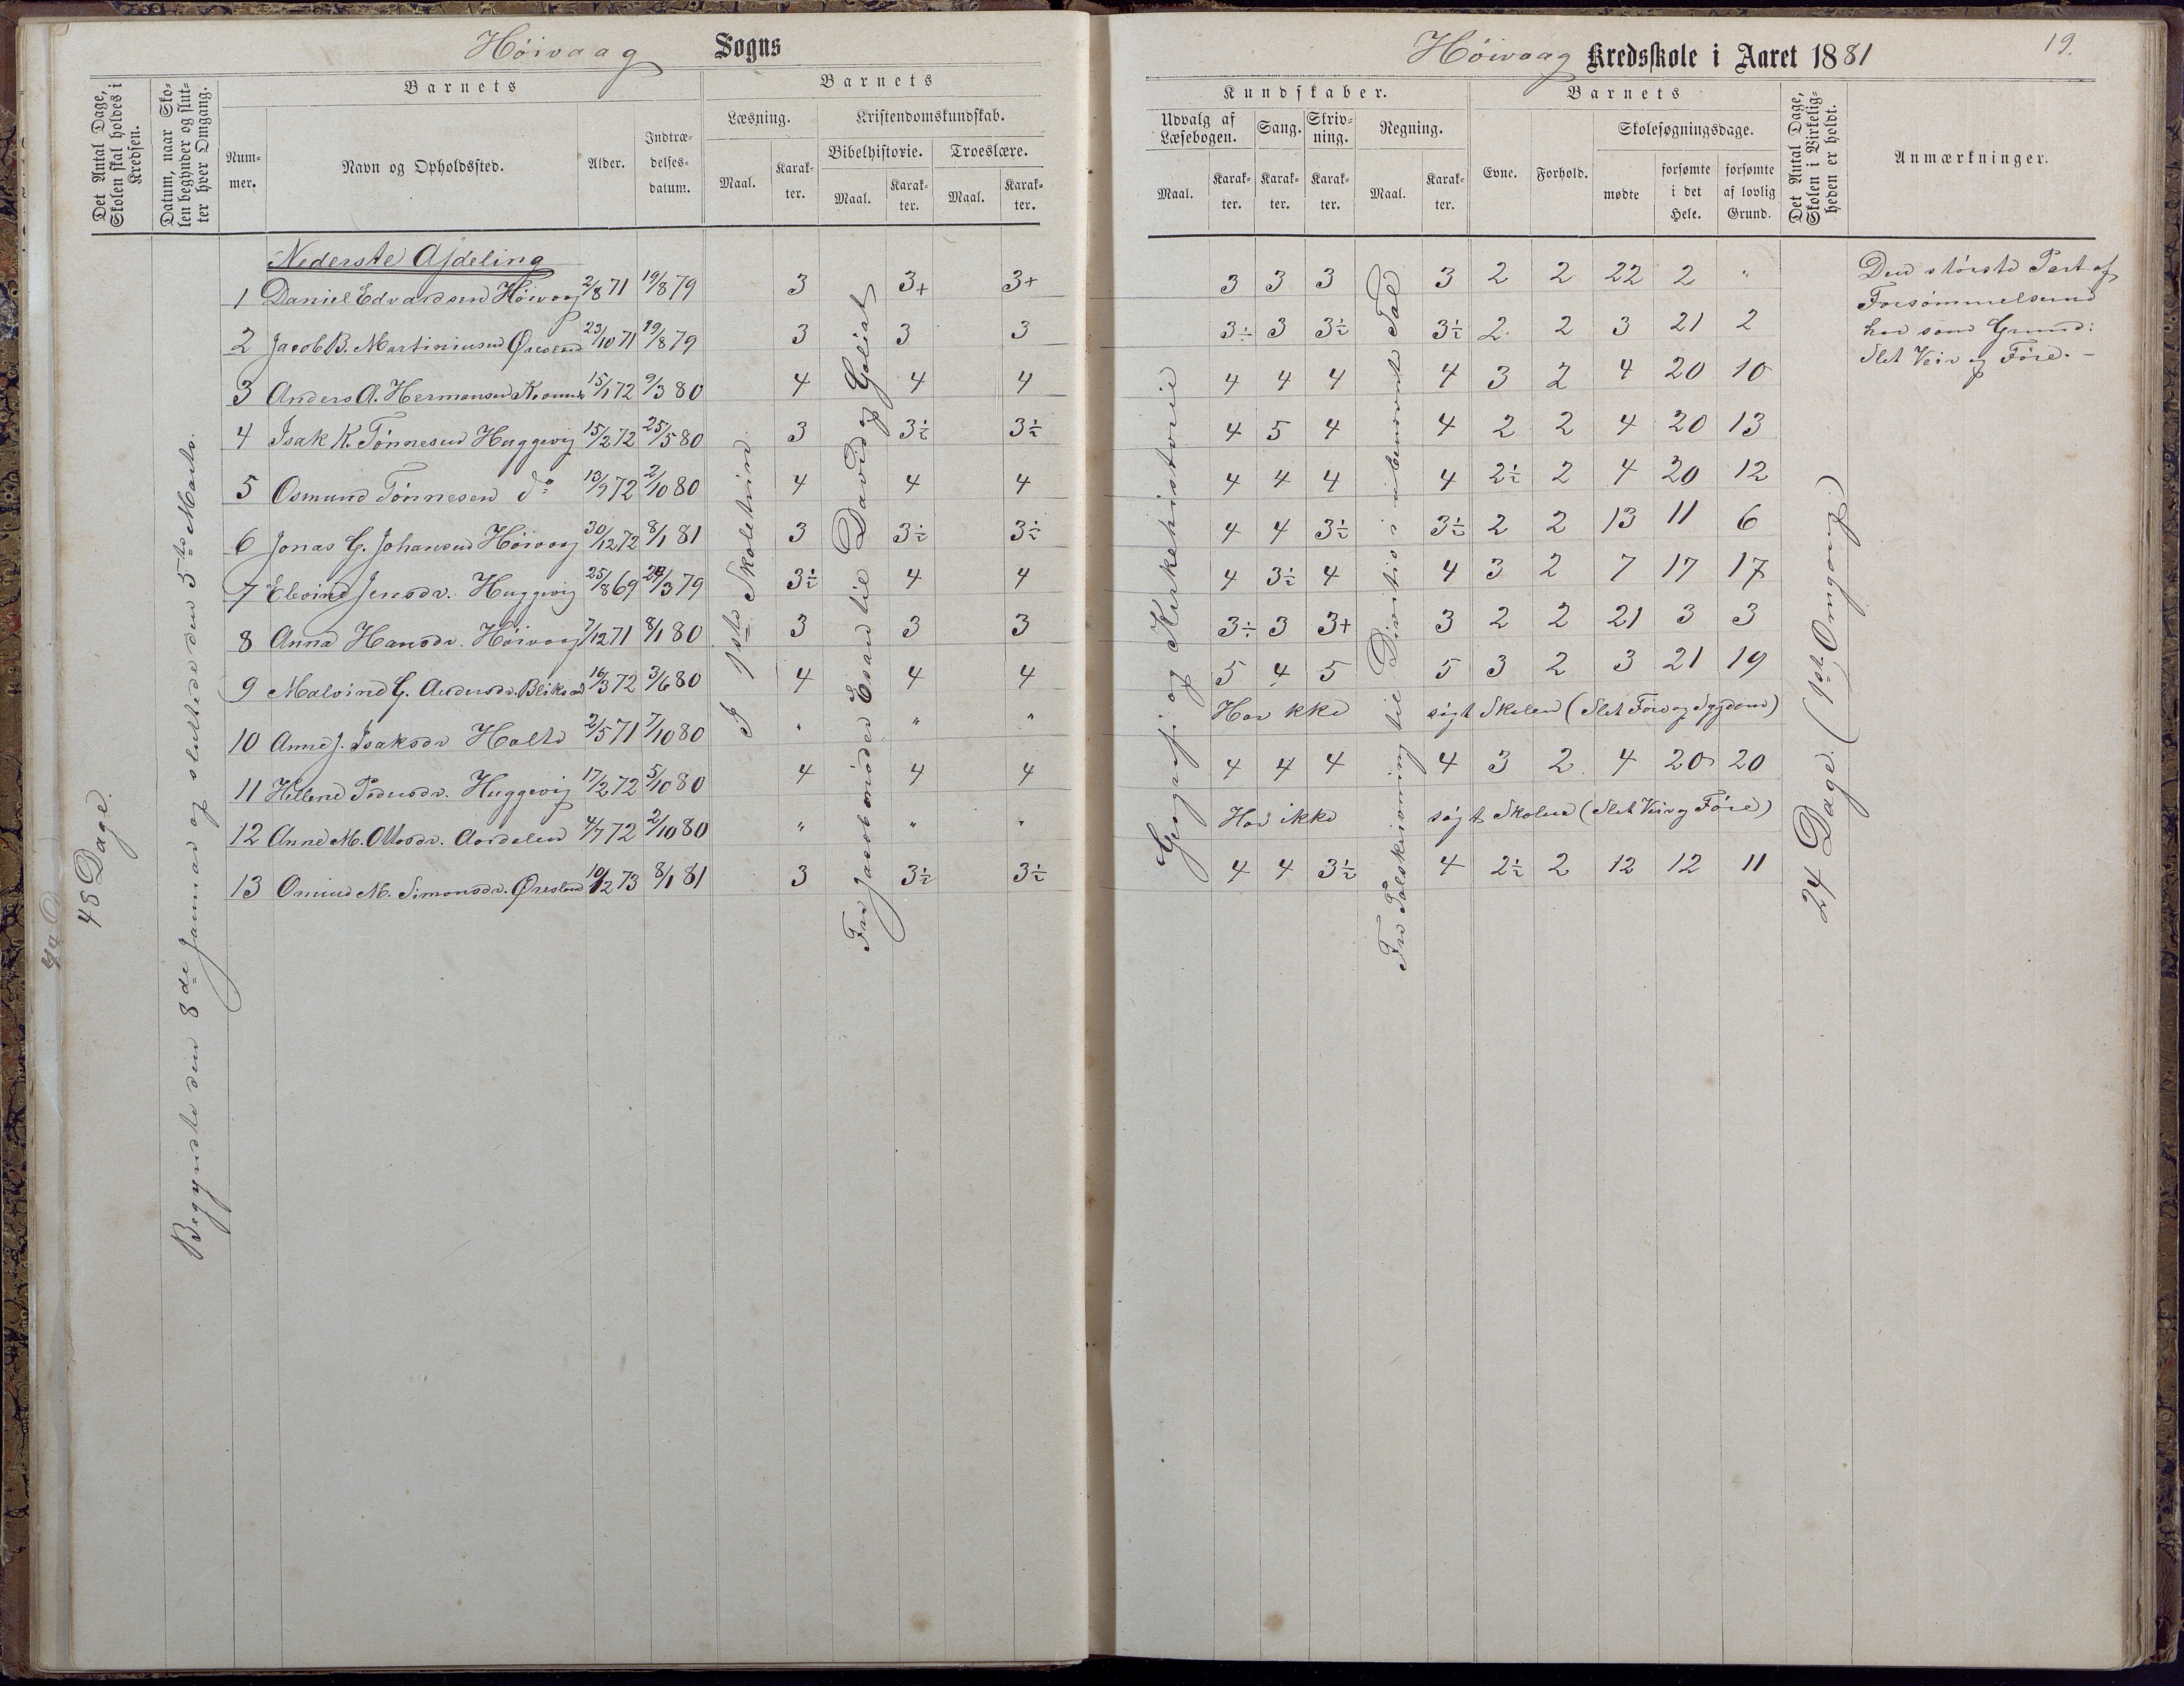 Høivaag Sogns
Det Antal Dage, Skolen skal holdes i Kredsen.
Datum, naar Skolen begynder og slutter hver Omgang.
Barnets
Nummer.
Navn og Opholdssted.
Alder.
Indtrædelsesdatum.
Barnets
Læsning.
Maal.
Karakter.
Kristendomskundskab.
Bibelhistorie.
Maal.
Karakter.
Troeslære.
Maal.
Karakter.
48 Dage.
Begyndte den 8de Januar og sluttede den 5te Marts.
I 1ste Skoletrin
Fra Jacob møder Esau til David og Goliat
Nederste Afdeling
1 Daniel Edvardsen Høivaag 2/8 71 19/8 79 3 3+ 3+
2 Jacob B. Martiniusen Øresland 23/10 71 19/8 79 3 3 3
3 Anders A. Hermansen 15/1 72 9/3 80 4 4 4
4 Isak K. Tønnesen Huggevig 15/2 72 25/5 80 3 3÷ 3÷
5 Osmund Tønnesen do 13/9 72 2/10 80 4 4 4
6 Jonas G. Johansen Høivaag 30/12 72 8/1 81 3 3÷ 3÷
7 Elevine Jensdr. Huggevig 25/8 69 /3 79 3÷ 4 4
8 Anna Hansdr. Høivaag 7/12 71 8/1 80 3 3 3
9 Malvine G. Andersdr. Bliksad 16/3 72 3/6 80 4 4 4
10 Anne J. Isaksdr Holte 2/5 71 7/10 80 " " "
11 Hellene Pedersdr. Huggevig 17/2 72 5/10 80 4 4 4
12 Anne M. Ottosdr. Aardalen 4/7 72 2/10 80 " " "
13 Omine M. Simonsdr. Øresland 10/12 73 8/1 81 3 3÷ 3÷
Høivaag Kredsskole i Aaret 1881
19.
Kundskaber.
Udvalg af Læsebogen.
Maal.
Karakter.
Sang.
Karakter.
Skrivning.
Karakter.
Regning.
Maal.
Karakter.
Barnets
Evne.
Forhold.
Skolesøgningsdage.
mødte
forsømte i det Hele.
forsømte af lovlig Grund.
Det Antal Dage, Skolen i Virkeligheden er holdt.
Anmærkninger.
Geografi og Kirkehistorie
Fra Talskrivning til Division i ubenævnte Tal
24 Dage. (1ste Omgang.)
3 3 3 3 2 2 22 2 "
3÷ 3 3÷ 3÷ 2 2 3 21 2
4 4 4 4 3 2 4 20 10
4 5 4 4 2 2 4 20 13
4 4 4 4 2÷ 2 4 20 12
4 4 3÷ 3÷ 2 2 13 11 6
4 3÷ 4 4 3 2 7 17 17
3÷ 3 3+ 3 2 2 21 3 3
5 4 5 5 3 2 3 21 19
Har ikke søgt Skolen (Slet Føre og Sygdom)
4 4 4 4 3 2 4 20 20
Har ikke søgt Skolen (Slet Veir og Føre)
4 4 3÷ 4 2÷ 2 12 12 11
Den største Part af
Forsømmelserne
har som Grund:
Slet Veir og Føre. –